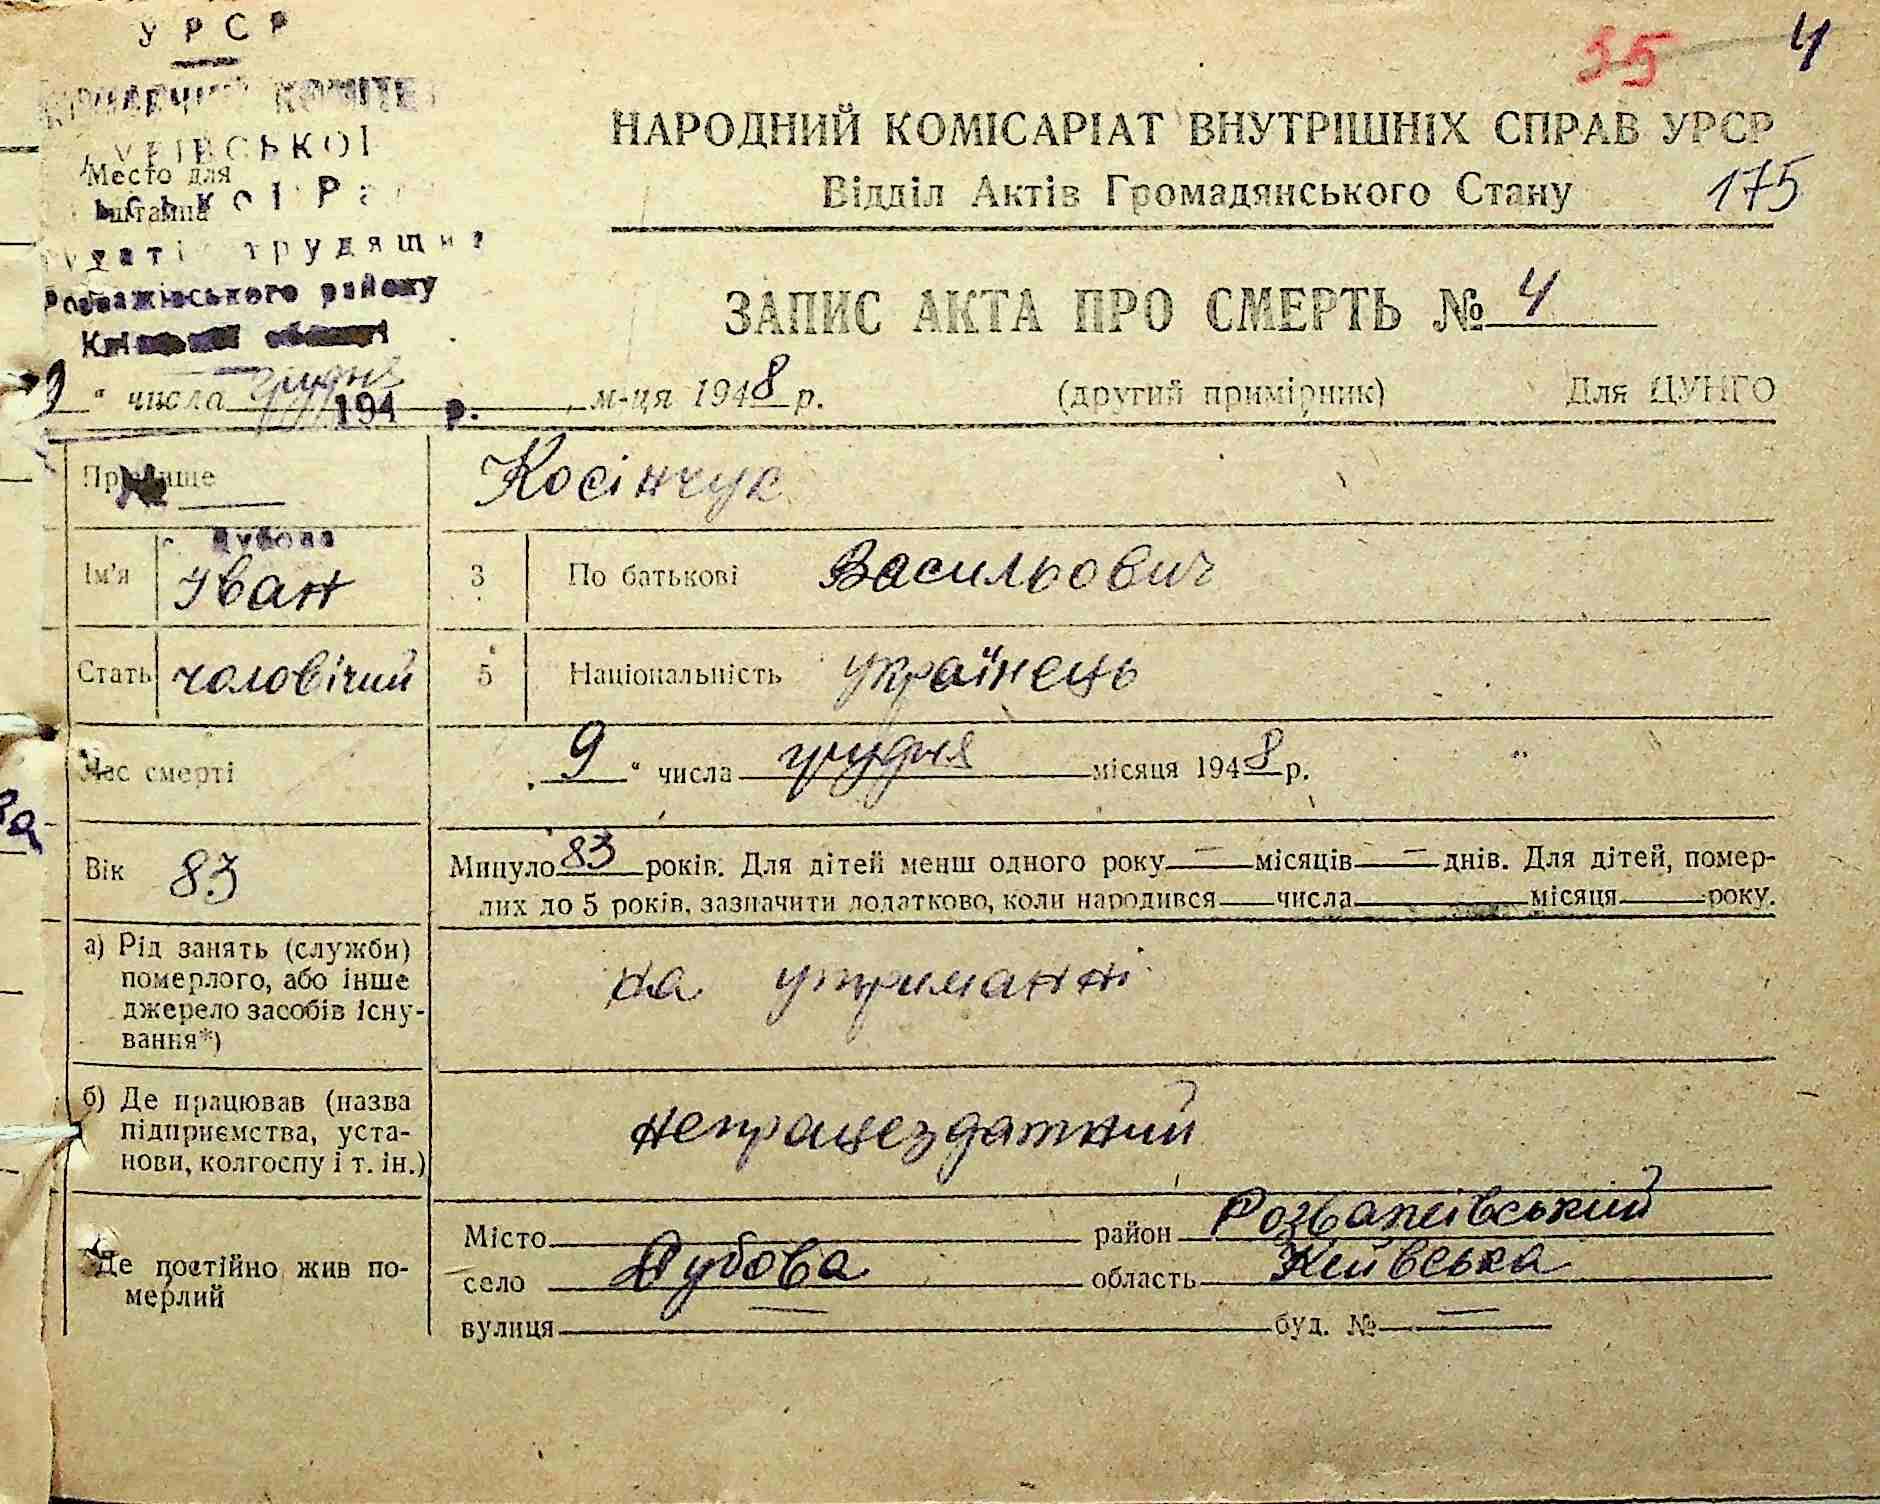 УРСР
КОМІТЕ
Место для
штампа
трудящих
Розважівського району
35 4
НАРОДНИЙ КОМІСАРІАТ ВНУТРІШНІХ СПРАВ УРСР
Відділ Актів Громадянського Стану 175
ЗАПИС АКТА ПРО СМЕРТЬ № 4
9 " числа грудня м-ця 1948 р. (другий примірник) Для ЦУНГО
194 р.
Прізвище Косінчук
№
с. Дубова
Ім'я Іван 3 По батькові Васильович
Стать чоловічий 5 Національність українець
Час смерті 9 " числа грудня місяця 1948 р.
Вік 83 Минуло 83 років. Для дітей менш одного року — місяців — днів. Для дітей, помер-
лих до 5 років, зазначити додатково, коли народився числа місяця року.
а) Рід занять (служби)
померлого, або інше
джерело засобів існу-
вання*)
на утриманні
б) Де працював (назва
підприємства, уста-
нови, колгоспу і т. ін.)
непрацездатний
Де постійно жив по-
мерлий
Місто район Розважівський
село Дубова область Київська
вулиця — буд. № —